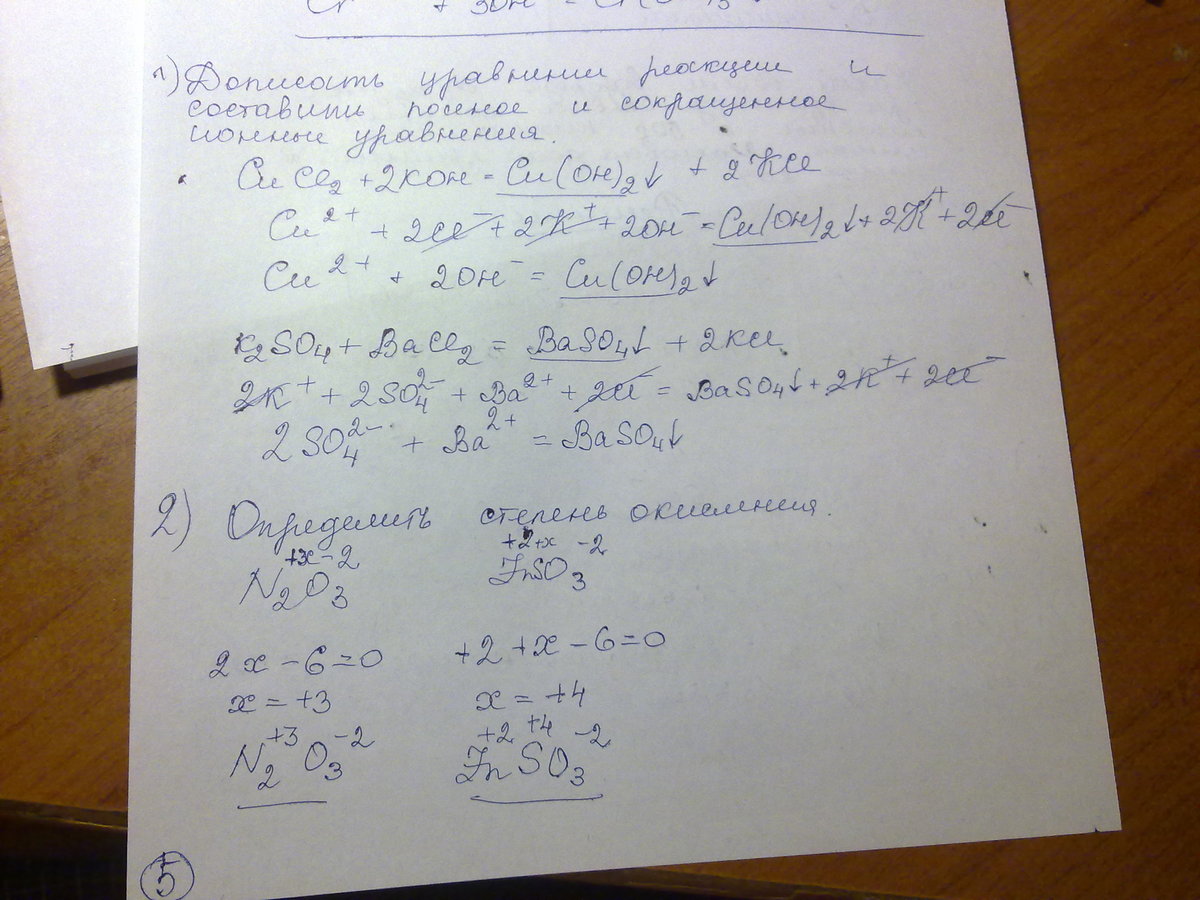 + 3OH⁻ =
1) Дописать уравнении реакции и
составить полное и сокращенное
ионные уравнения.
CuCl₂ + 2KOH = Cu(OH)₂↓ + 2KCl
Cu²⁺ + 2Cl⁻ + 2K⁺ + 2OH⁻ = Cu(OH)₂↓ + 2K⁺ + 2Cl⁻
Cu²⁺ + 2OH⁻ = Cu(OH)₂↓
K₂SO₄ + BaCl₂ = BaSO₄↓ + 2KCl
2K⁺ + 2SO₄²⁻ + Ba²⁺ + 2Cl⁻ = BaSO₄↓ + 2K⁺ + 2Cl⁻
2SO₄²⁻ + Ba²⁺ = BaSO₄↓
2) Определить степень окисления.
+x -2 +2 +x -2
N₂O₃ ZnSO₃
2x - 6 = 0 +2 + x - 6 = 0
x = +3 x = +4
+3 -2 +2 +4 -2
N₂O₃ ZnSO₃
5